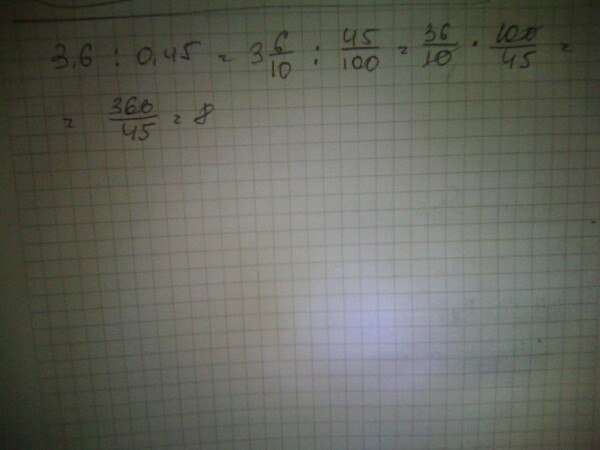 3,6 : 0,45 = 3 6/10 : 45/100 = 36/10 · 100/45 =
= 360/45 = 8